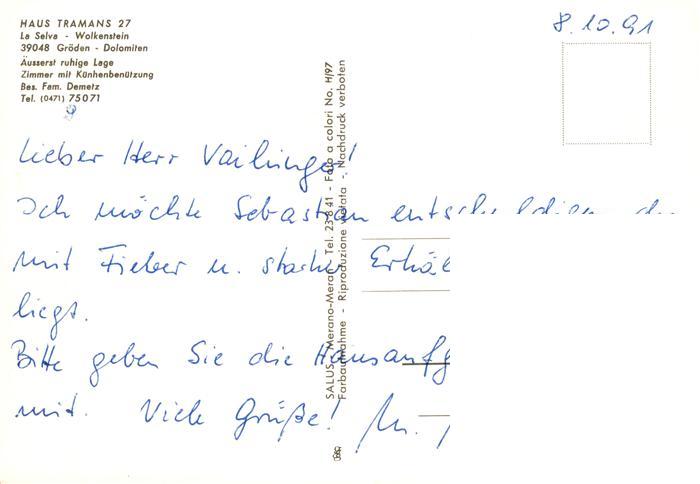 HAUS TRAMANS 27
La Selva - Wolkenstein
39048 Gröden - Dolomiten
Äusserst ruhige Lage
Zimmer mit Künhenbenützung
Bes. Fam. Demetz
Tel. (0471) 75071
8.10.91
Lieber Herr Vailinger!
Ich möchte Sebastian
mit Fieber u. starker Erkäl
liegt.
Bitte geben Sie die Hausaufg
mit. Viele Grüße! M.
SALUS - Merano-Meran - Tel. 23 8 41 - Foto a colori No. H/97
Farbaufnahme - Riproduzione vietata - Nachdruck verboten